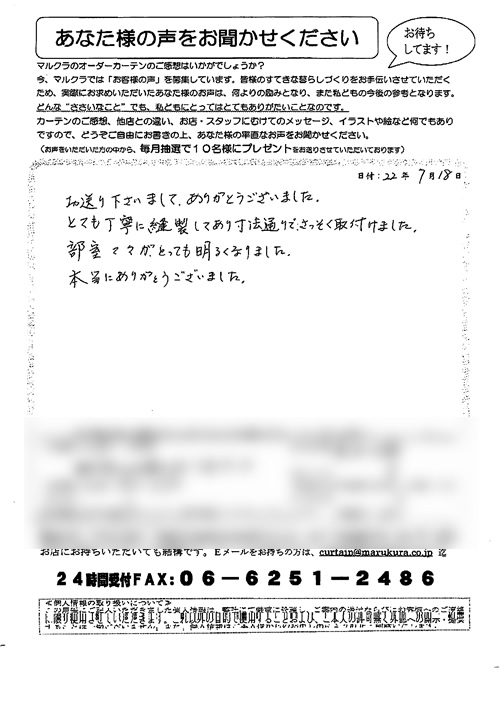 あなた様の声をお聞かせください
お待ち
してます！
マルクラのオーダーカーテンのご感想はいかがでしょうか？
今、マルクラでは「お客様の声」を募集しています。皆様のすてきな暮らしづくりをお手伝いさせていただく
ため、実際にお求めいただいたあなた様のお声は、何よりの励みとなり、また私どもの今後の参考となります。
どんな“ささいなこと”でも、私どもにとってはとてもありがたいことなのです。
カーテンのご感想、他店との違い、お店・スタッフにむけてのメッセージ、イラストや絵など何でもあり
ですので、どうぞご自由にお書きの上、あなた様の率直なお声をお聞かせください。
（お声をいただいた方の中から、毎月抽選で１０名様にプレゼントをお送りさせていただいております）
日付：22年 7月18日
お送り下さいまして、ありがとうございました。
とても丁寧に縫製してあり寸法通りで、さっそく取付けました。
部屋 がとっても明るくなりました。
本当にありがとうございました。
お店にお持ちいただいても結構です。Eメールをお持ちの方は、curtain@marukura.co.jp 迄
２４時間受付FAX：０６－６２５１－２４８６
≪個人情報の取り扱いについて≫